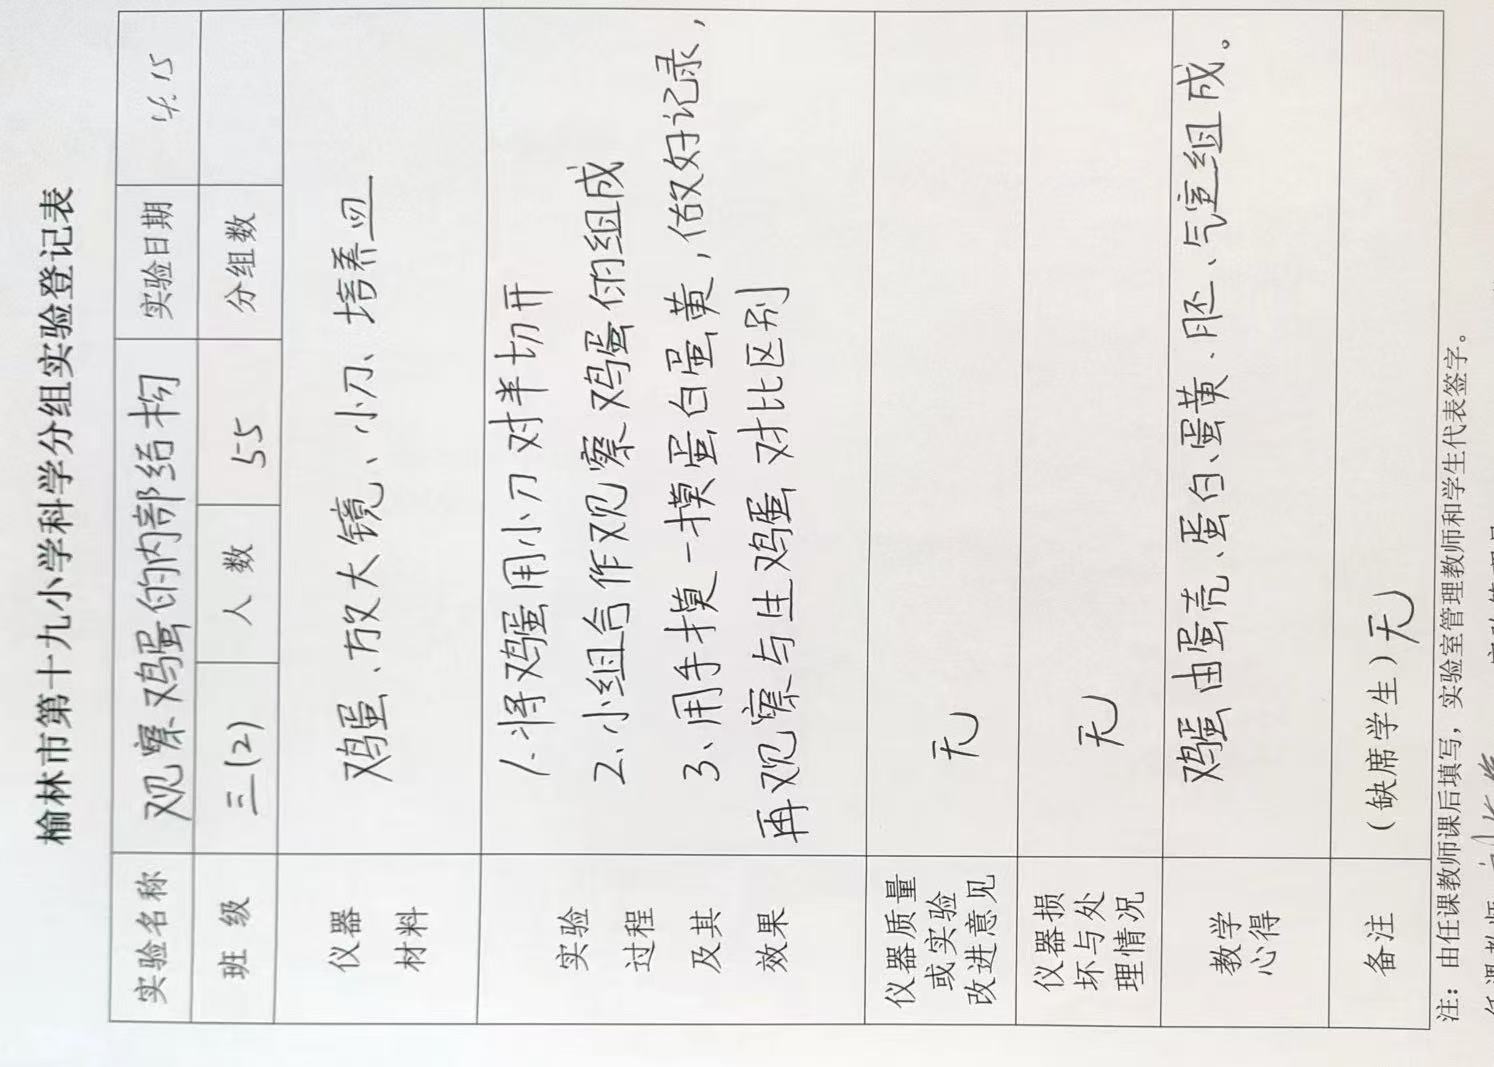 榆林市第十九小学科学分组实验登记表
实验名称 观察鸡蛋的内部结构 实验日期 4.15
班 级 三(2) 人 数 55 分组数
仪器
材料
鸡蛋、放大镜、小刀、培养皿
实验
过程
及其
效果
1.将鸡蛋用小刀对半切开
2、小组合作观察鸡蛋的组成
3、用手摸一摸蛋白蛋黄,做好记录,
再观察与生鸡蛋对比区别
仪器质量
或实验
改进意见
无
仪器损
坏与处
理情况
无
教学
心得
鸡蛋由蛋壳、蛋白、蛋黄、胚、气室组成。
备注 (缺席学生)无
注：由任课教师课后填写，实验室管理教师和学生代表签字。